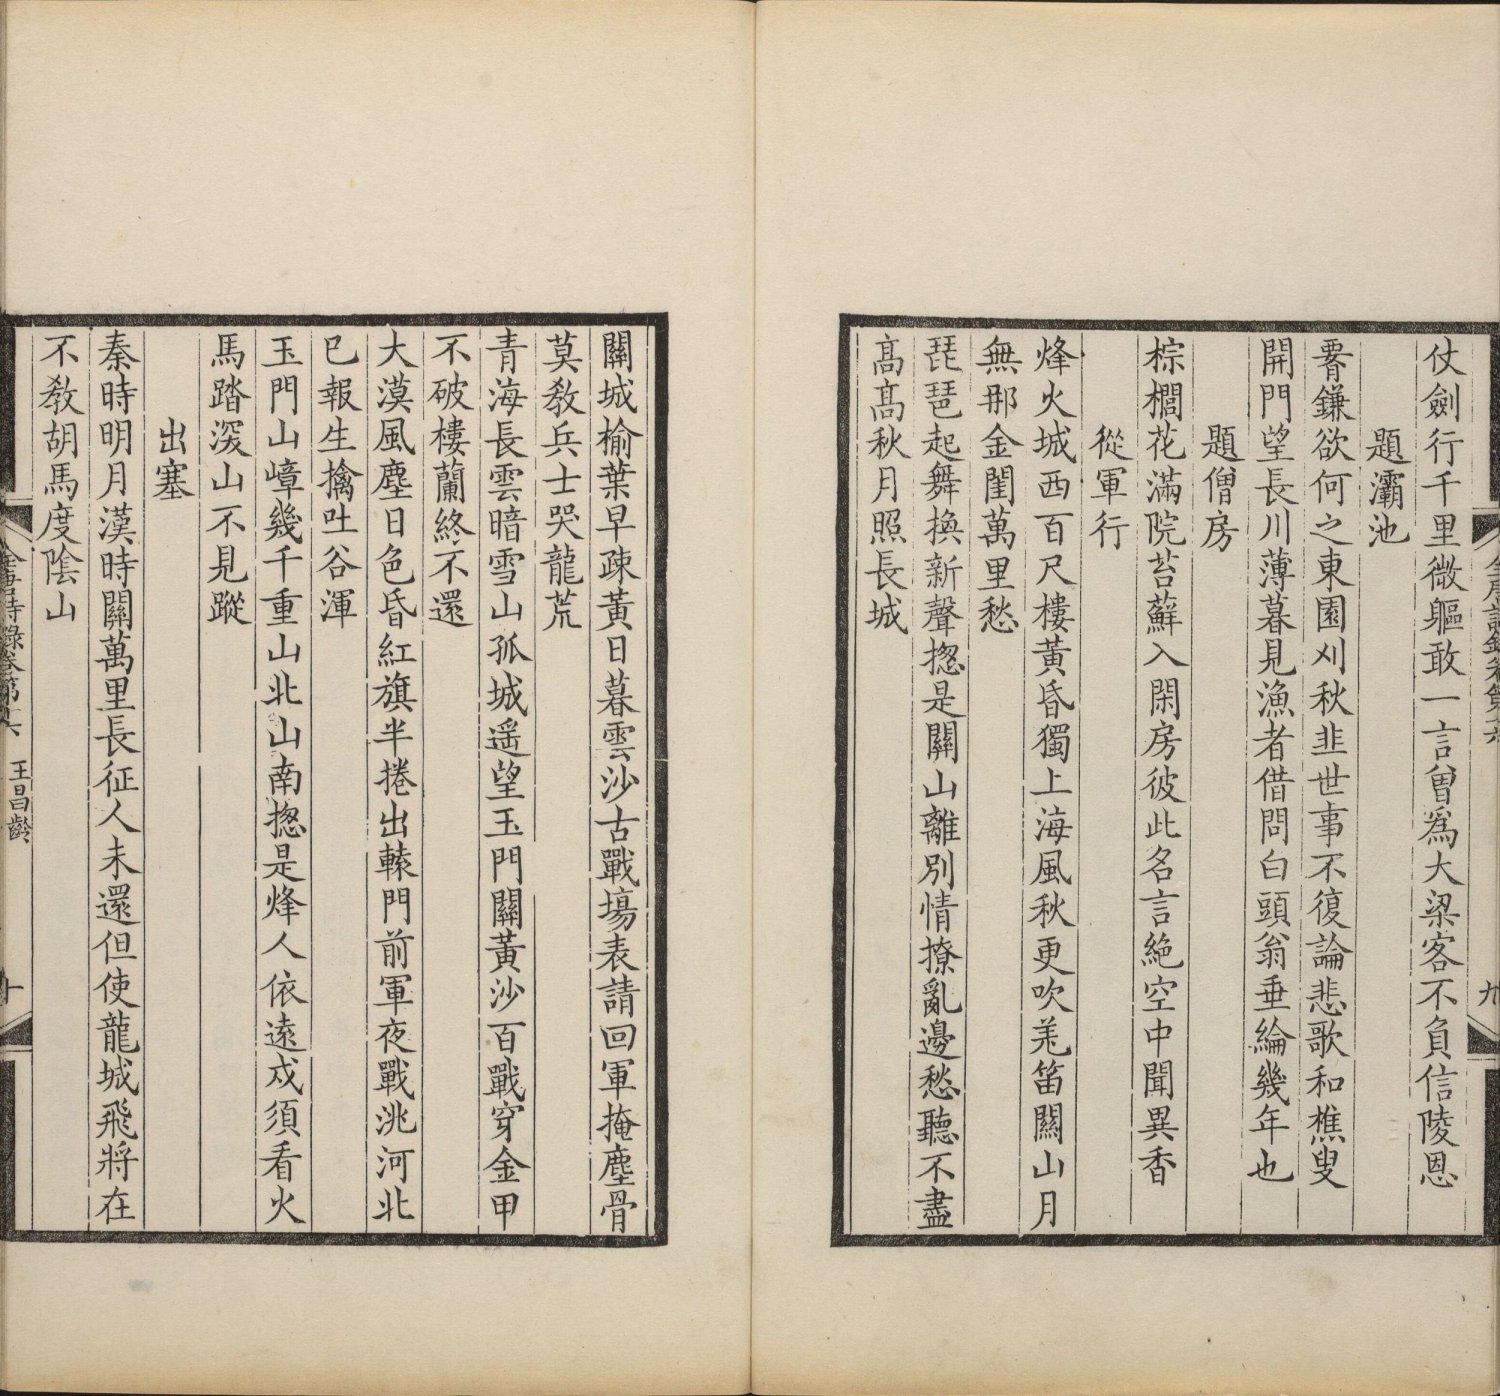 仗劍行千里微軀敢一言曾爲大梁客不負信陵恩
題灞池
腰鎌欲何之東園刈秋韭世事不復論悲歌和樵叟
開門望長川薄暮見漁者借問白頭翁垂綸幾年也
題僧房
棕櫚花滿院苔蘚入閑房彼此名言絶空中聞異香
從軍行
烽火城西百尺樓黄昏獨上海風秋更吹羌笛關山月
無那金閨萬里愁
琵琶起舞換新聲揔是關山離別情撩亂邊愁聽不盡
髙髙秋月照長城
關城榆葉早疎黄日暮雲沙古戰塲表請回軍掩塵骨
莫教兵士哭龍荒
青海長雲暗雪山孤城遥望玉門關黄沙百戰穿金甲
不破樓蘭終不還
大漠風塵日色昏紅旗半捲出轅門前軍夜戰洮河北
已報生擒吐谷渾
玉門山嶂幾千重山北山南揔是烽人依遠戍須看火
馬踏深山不見蹤
出塞
秦時明月漢時關萬里長征人未還但使龍城飛將在
不教胡馬度陰山
全唐詩錄卷第十六 王昌齡 十